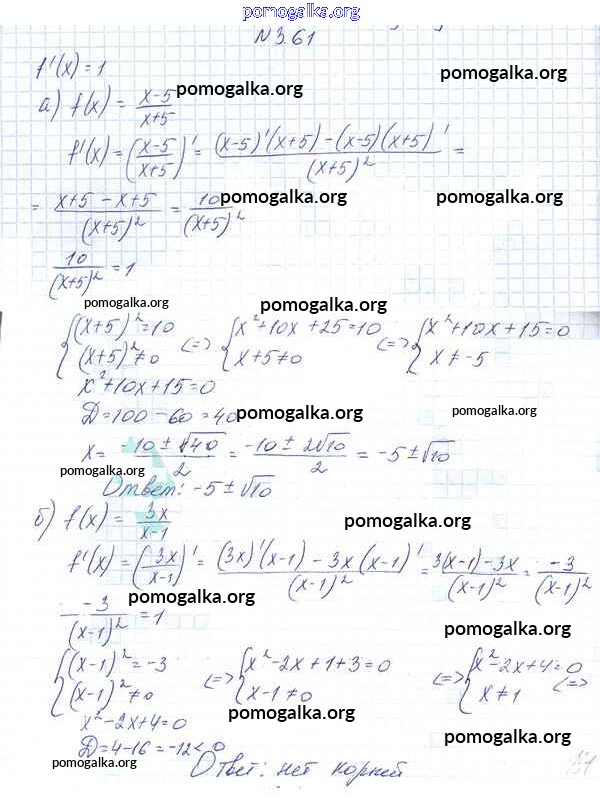 pomogalka.org
N 3.61
f'(x) = 1 pomogalka.org
а) f(x) = (x-5)/(x+5) pomogalka.org
f'(x) = ((x-5)/(x+5))' = ((x-5)'(x+5) - (x-5)(x+5)')/(x+5)² =
= (x+5 - x+5)/(x+5)² = 10/(x+5)² pomogalka.org pomogalka.org
10/(x+5)² = 1
pomogalka.org pomogalka.org
{(x+5)² = 10 <=> {x² + 10x + 25 = 10 <=> {x² + 10x + 15 = 0
(x+5)² ≠ 0 x + 5 ≠ 0 x ≠ -5
x² + 10x + 15 = 0
D = 100 - 60 = 40 pomogalka.org pomogalka.org
x = (-10 ± √40)/2 = (-10 ± 2√10)/2 = -5 ± √10
pomogalka.org
Ответ: -5 ± √10
б) f(x) = 3x/(x-1) pomogalka.org
f'(x) = (3x/(x-1))' = ((3x)'(x-1) - 3x(x-1)')/(x-1)² = (3(x-1) - 3x)/(x-1)² = -3/(x-1)²
-3/(x-1)² = 1 pomogalka.org
pomogalka.org
{(x-1)² = -3 <=> {x² - 2x + 1 + 3 = 0 <=> {x² - 2x + 4 = 0 <=>
(x-1)² ≠ 0 x - 1 ≠ 0 x ≠ 1
x² - 2x + 4 = 0 pomogalka.org
D = 4 - 16 = -12 < 0 pomogalka.org
pomogalka.org Ответ: нет корней